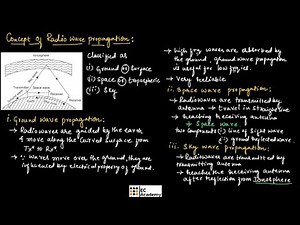 Concept of Radio wave propagation:
classified as
(i) Ground (or) Surface
(ii) Space (or) tropospheric
(iii) Sky
i. Ground wave propagation:
→ Radiowaves are guided by the earth
& move along the curved surface from
Tx to Rx
→ ∵ Waves move over the ground, they are
influenced by electrical property of ground.
→ high frq waves are absorbed by
the ground, ground wave propagation
is useful for low frqies.
→ Very reliable
ii. Space wave propagation:
→ Radiowaves are transmitted by
antenna → travel in straight line
→ reaching receiving antenna
→ Space wave
two components (i) line of sight wave
(ii) ground reflected wave
iii. Sky wave propagation:
→ Radiowaves are transmitted by
transmitting antenna
→ reaches the receiving antenna
after reflection from Ionosphere
EC Academy